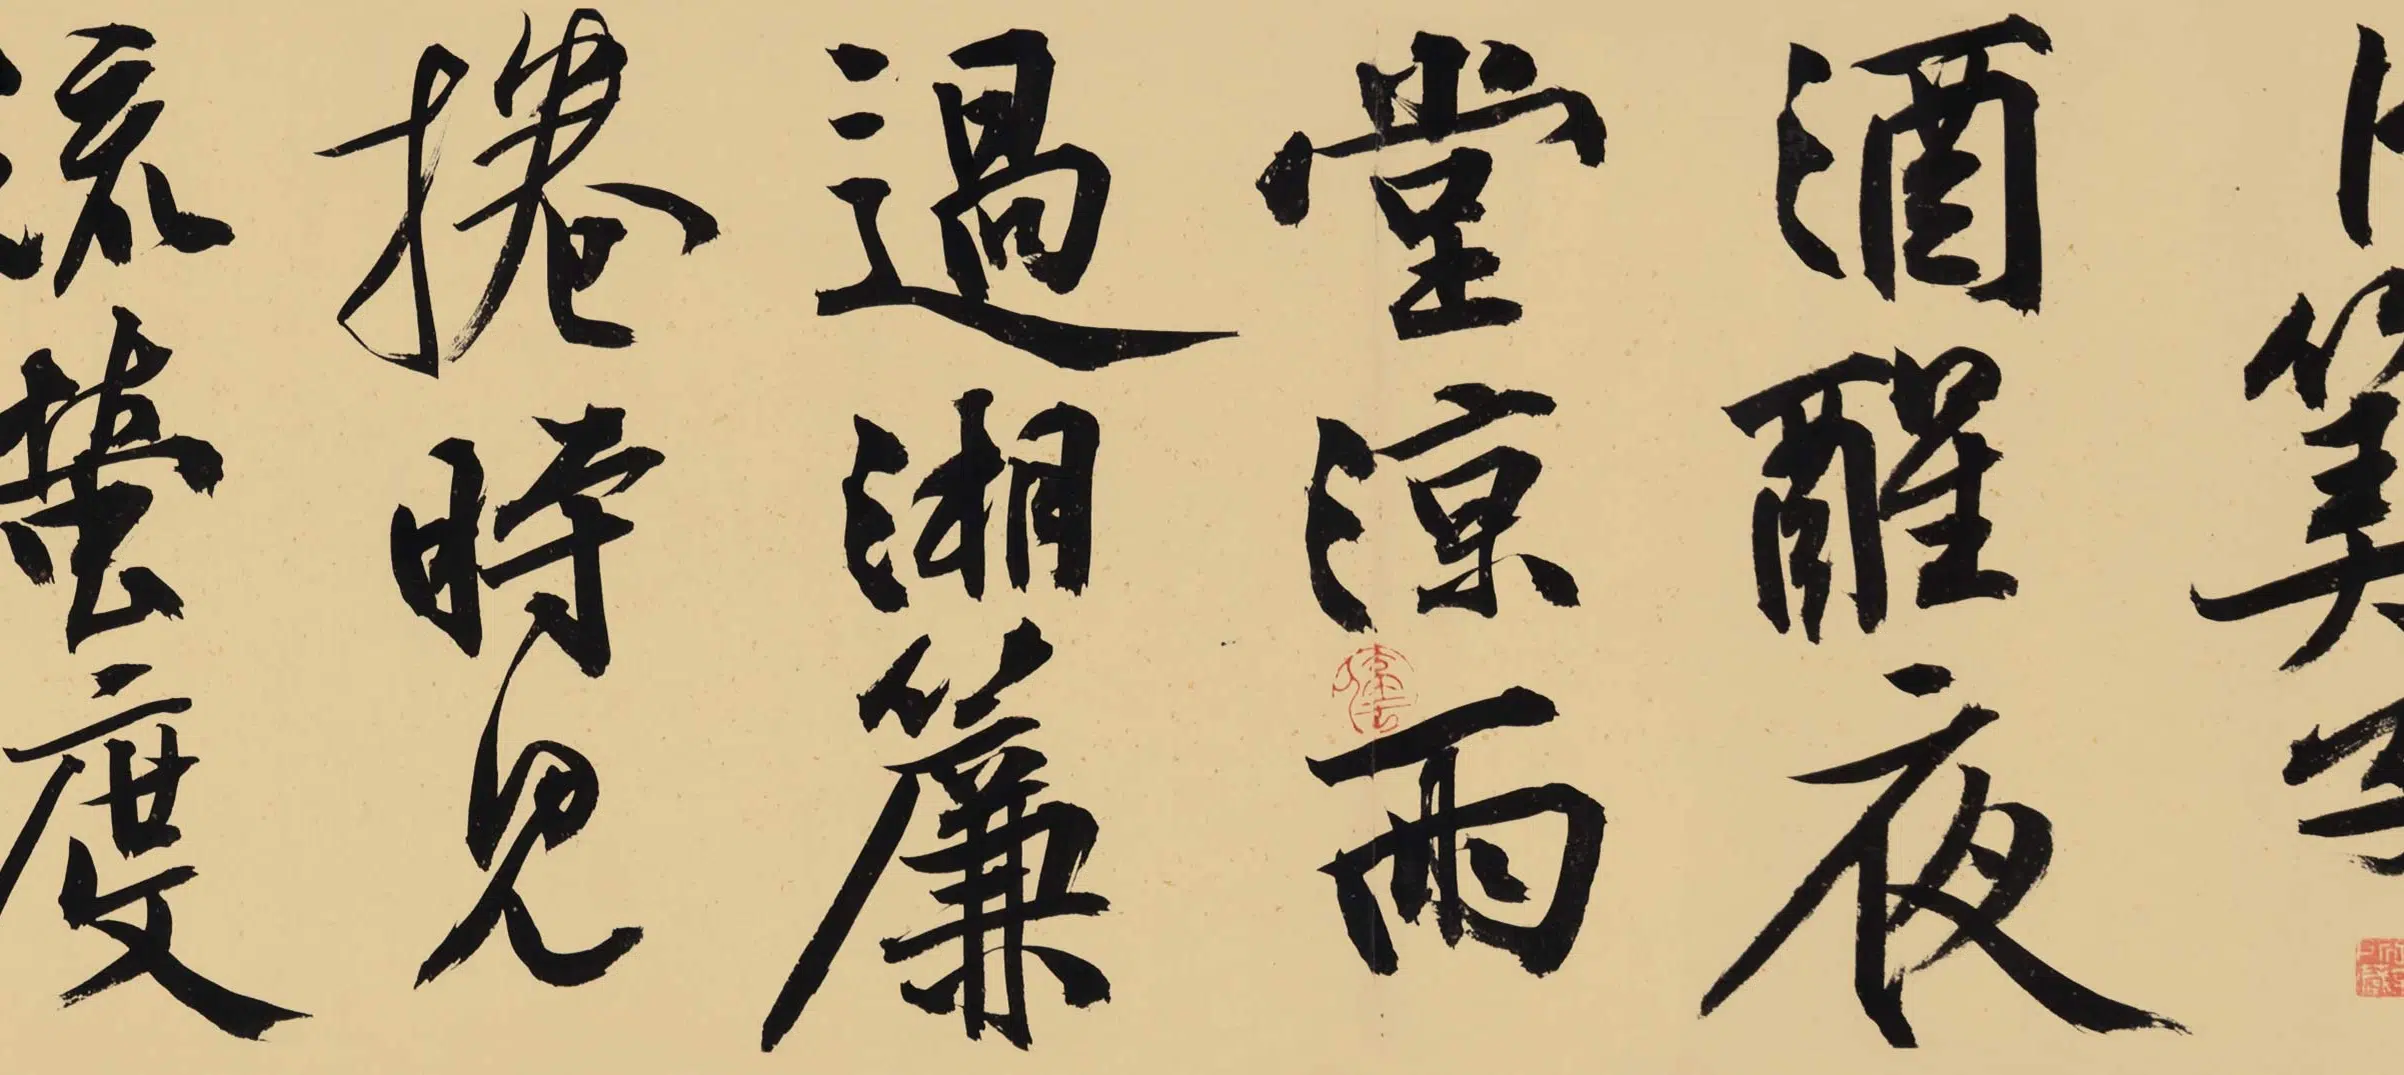 酒醒夜
堂涼雨
過湘簾
捲時見
流螢度